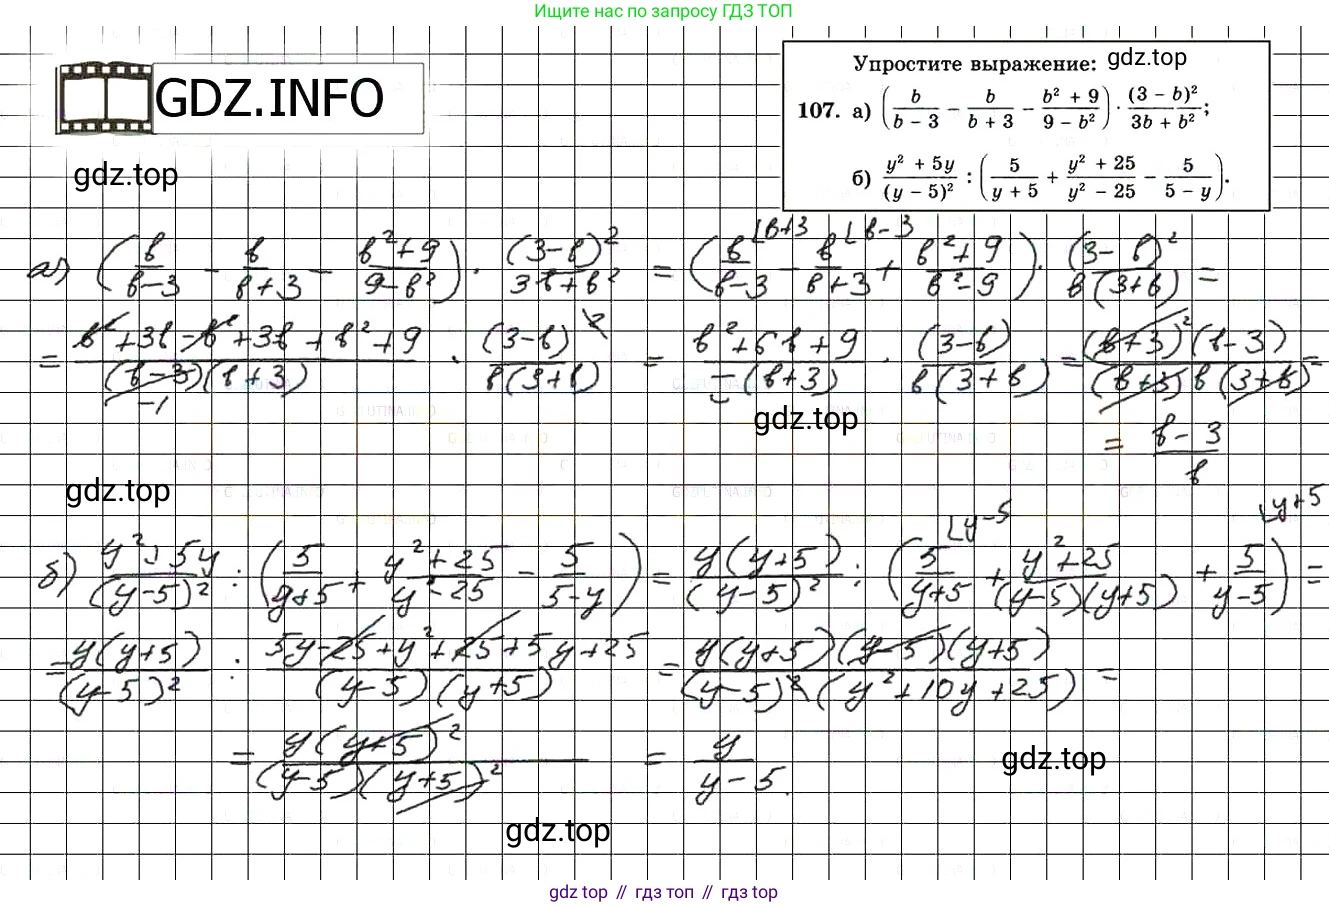 Ищите нас по запросу ГДЗ ТОП
GDZ.INFO
gdz.top
Упростите выражение: gdz.top
107. а) (b/(b − 3) − b/(b + 3) − (b² + 9)/(9 − b²)) · (3 − b)²/(3b + b²);
б) (y² + 5y)/(y − 5)² : (5/(y + 5) + (y² + 25)/(y² − 25) − 5/(5 − y)).
а) (в/(в−3) − в/(в+3) − (в²+9)/(9−в²)) · (3−в)²/(3в+в²) = (в/(в−3) ⌊в+3 − в/(в+3) ⌊в−3 + (в²+9)/(в²−9)) · (3−в)²/(в(3+в)) =
= (в²+3в−в²+3в+в²+9)/((в−3)(в+3)) −1 · (3−в)²/(в(3+в)) = (в²+6в+9)/(−(в+3)) · (3−в)/(в(3+в)) = (в+3)²(в−3)/((в+3)в(3+в)) =
gdz.top
= (в−3)/в
gdz.top
б) (y²+5y)/(y−5)² : (5/(y+5) + (y²+25)/(y²−25) − 5/(5−y)) = y(y+5)/(y−5)² : (5/(y+5) ⌊y−5 + (y²+25)/((y−5)(y+5)) + 5/(y−5) ⌊y+5) =
= y(y+5)/(y−5)² : (5y−25+y²+25+5y+25)/((y−5)(y+5)) = y(y+5)(y−5)(y+5)/((y−5)²(y²+10y+25)) =
= y(y+5)²/((y−5)(y+5)²) = y/(y−5).
gdz.top
gdz.top
gdz top // гдз топ // гдз top